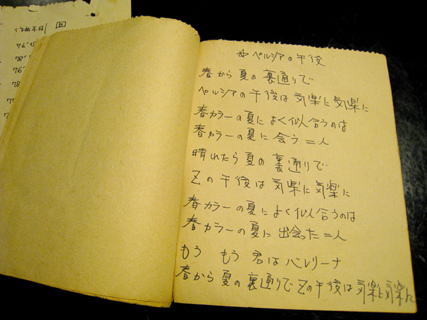 生年月日/
ペルシアの午後
春から夏の裏通りで
ペルシアの午後は気楽に気楽に
春カラーの夏によく似合うのは
春カラーの夏に会う二人
晴れたら夏の裏通りで
Zの午後は気楽に気楽に
春カラーの夏によく似合うのは
春カラーの夏に出会った二人
もう もう 君はバレリーナ
春から夏の裏通りでZの午後は気楽に気楽に